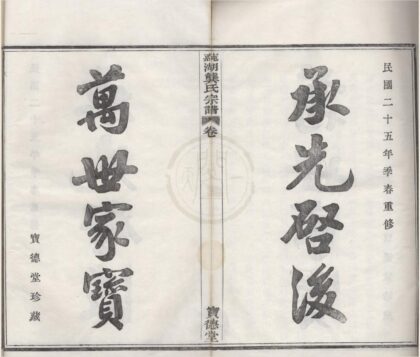 民國二十五年季春重修
承先啓後
蕪湖龔氏宗譜
卷
寶德堂
萬世家寶
寶德堂珍藏